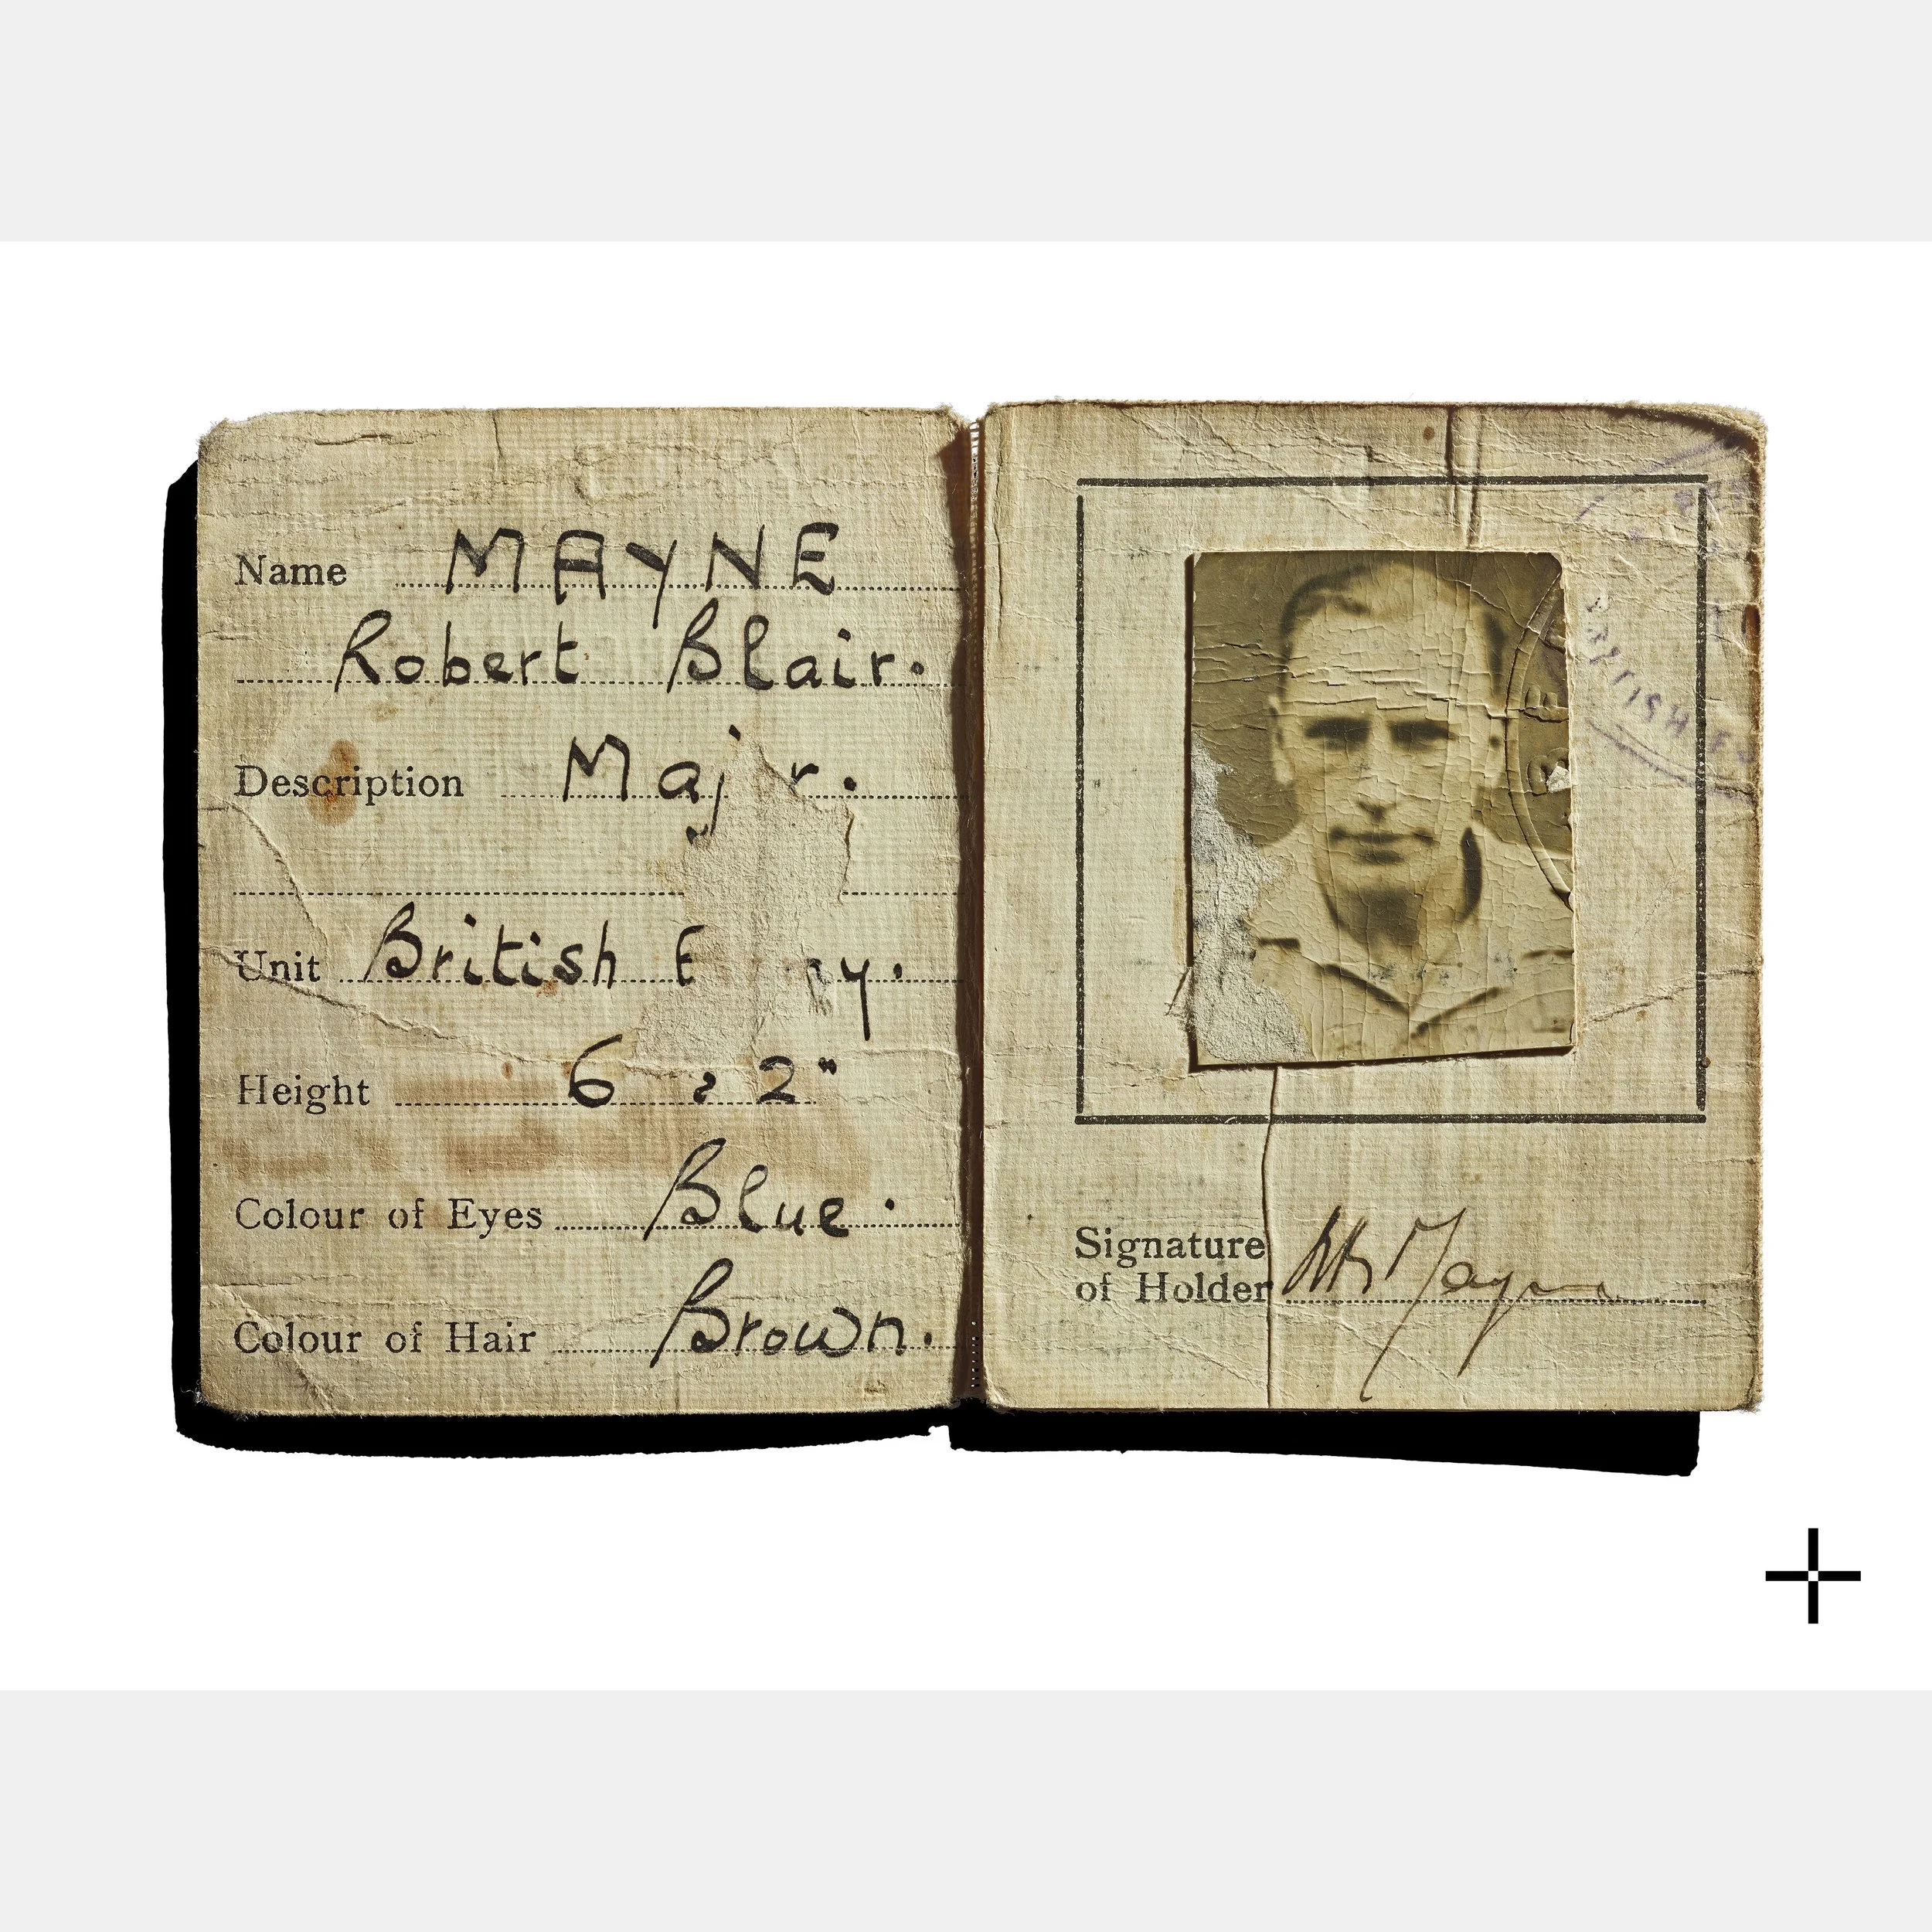 Name MAYNE
Robert Blair.
Description Maj r.
Unit British y.
Height 6 2"
Colour of Eyes Blue.
Colour of Hair Brown.
Signature
of Holder Mayne